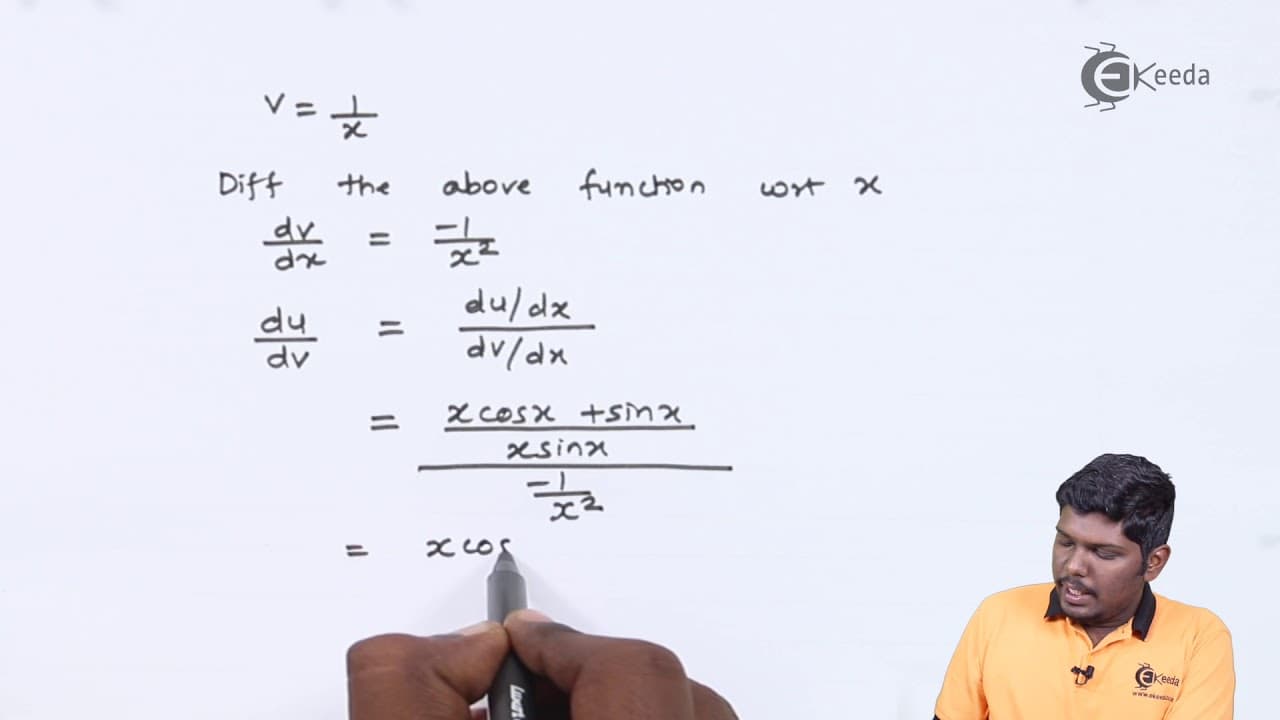 EKeeda
V = 1/x
Diff the above function wrt x
dv/dx = -1/x²
du/dv = du/dx / dv/dx
= xcosx + sinx / xsinx / -1/x²
= xcos
EKeeda